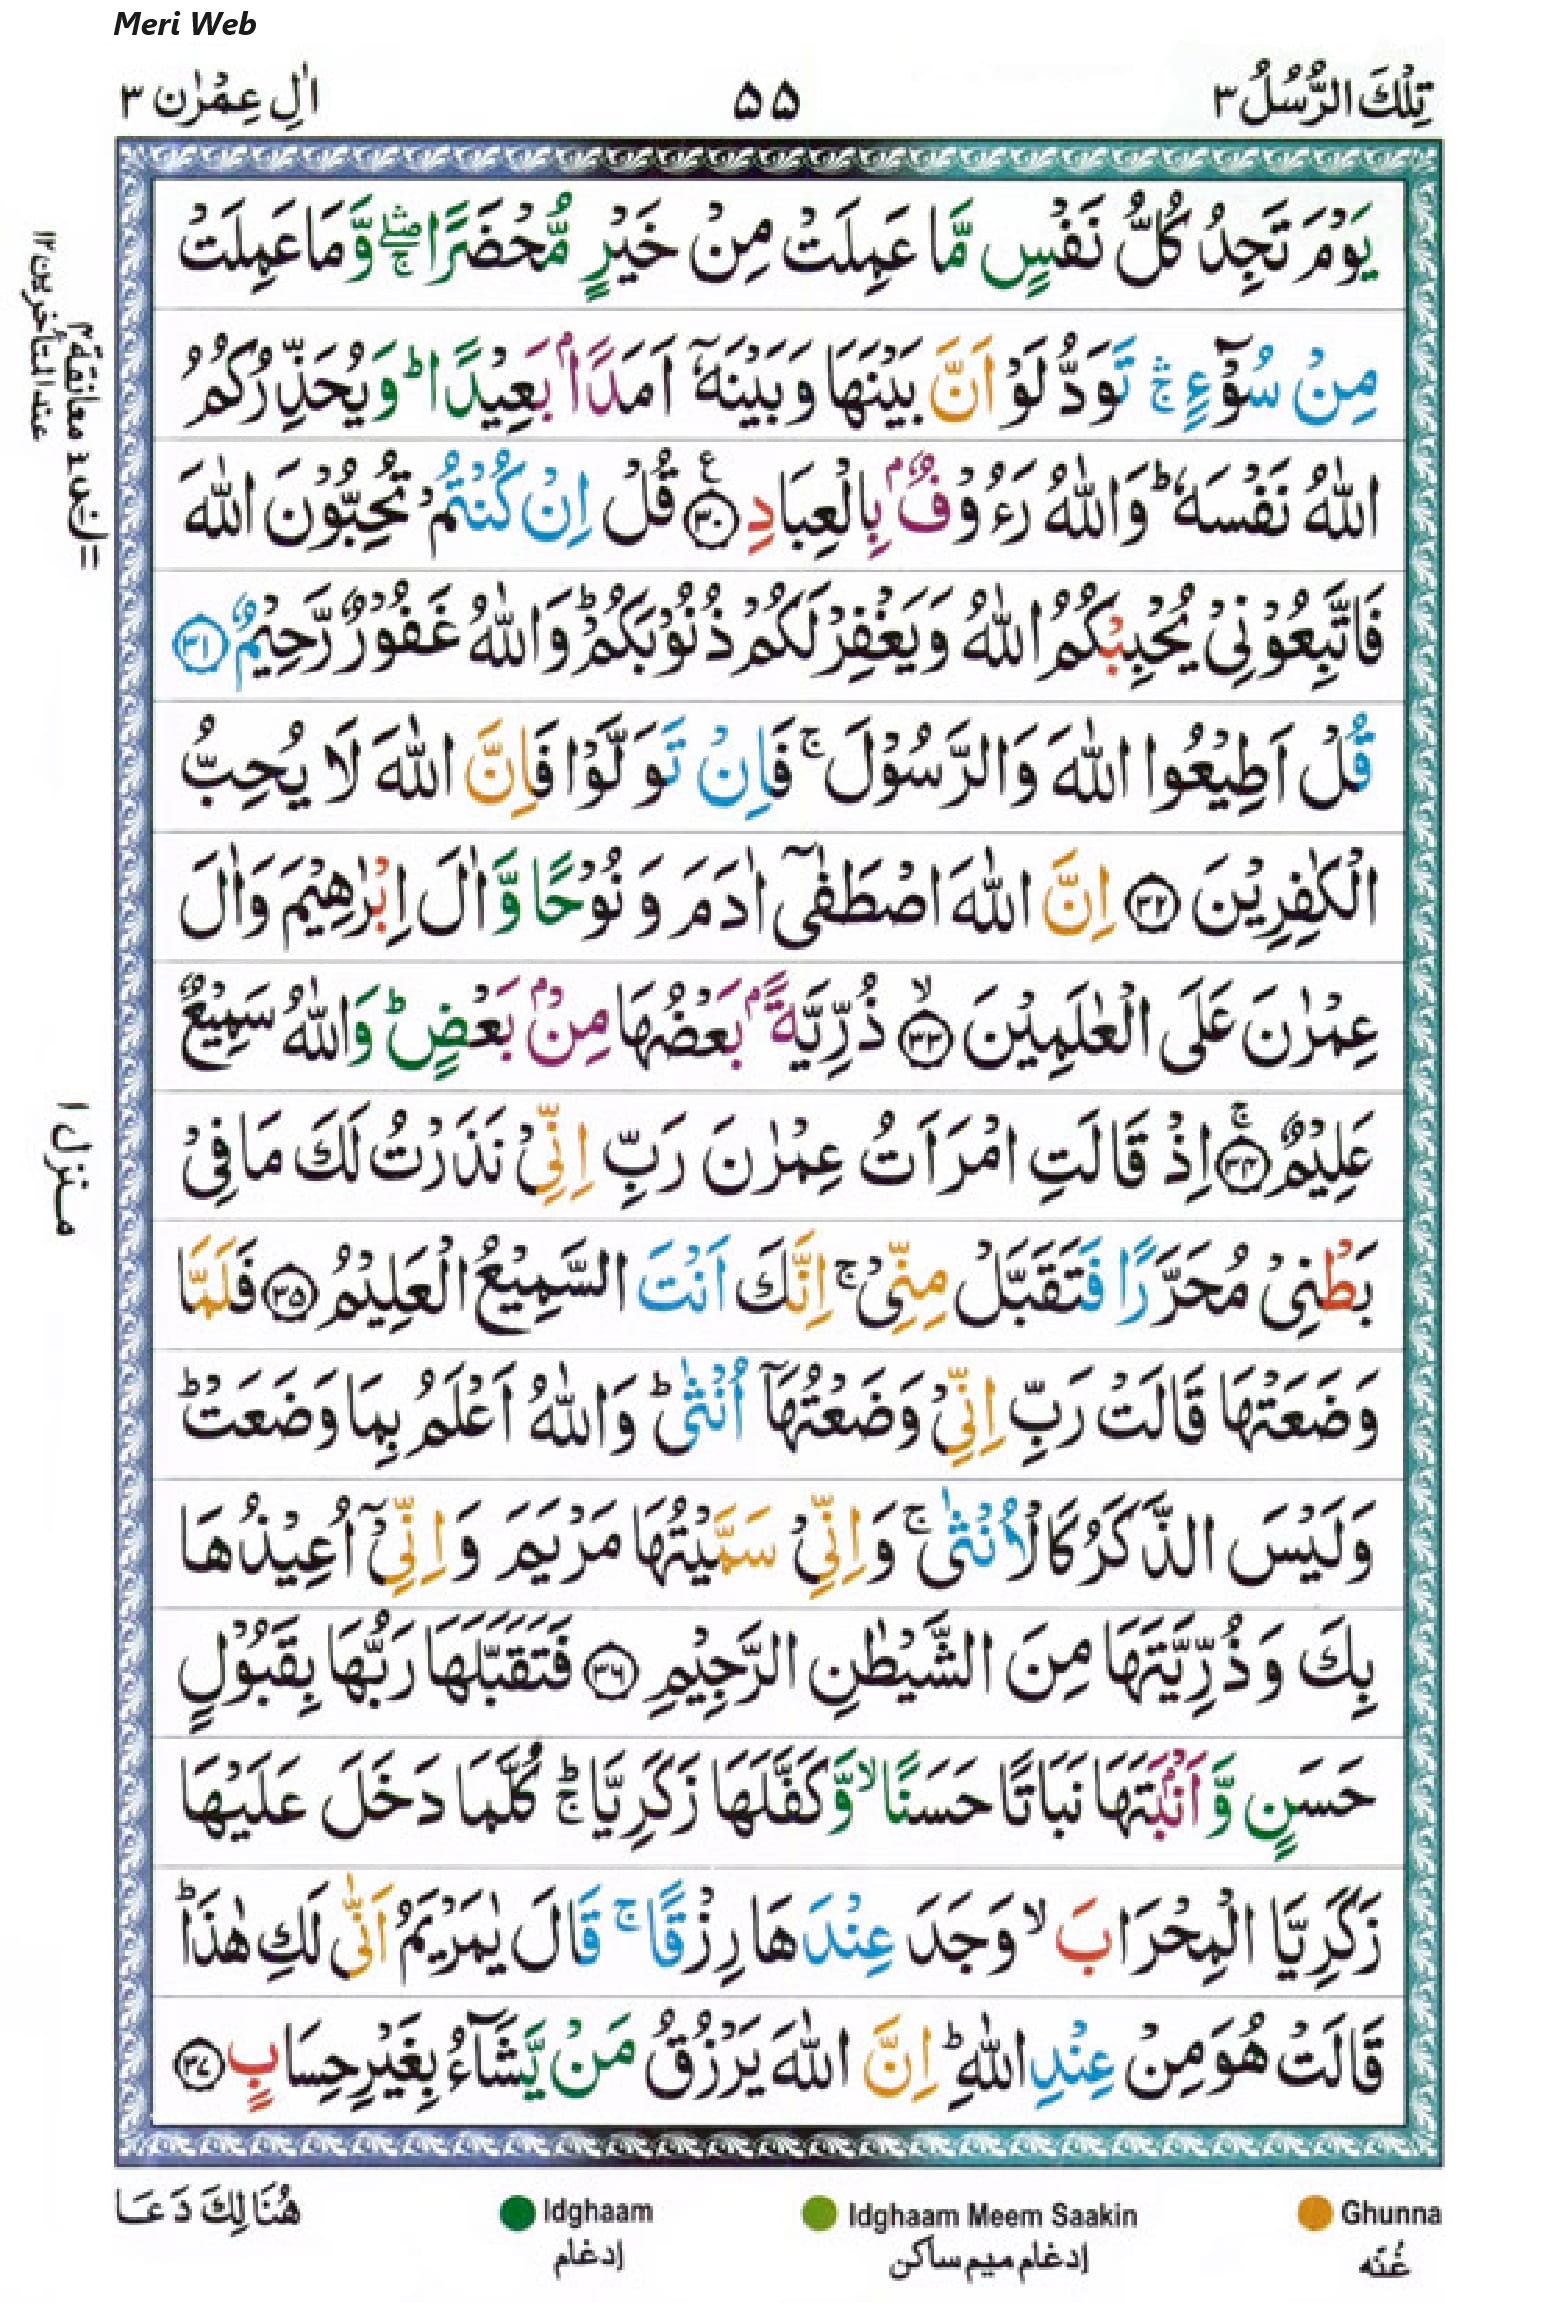 Meri Web
تِلْكَ الرُّسُلُ ٣
٥٥
اٰلِ عِمْرٰن ٣
يَوْمَ تَجِدُ كُلُّ نَفْسٍ مَّا عَمِلَتْ مِنْ خَيْرٍ مُّحْضَرًا ۛۚ وَّمَا عَمِلَتْ
مِنْ سُوْٓءٍ ۛۚ تَوَدُّ لَوْ اَنَّ بَيْنَهَا وَبَيْنَهٗٓ اَمَدًاۢ بَعِيْدًا ؕ وَيُحَذِّرُكُمُ
اللّٰهُ نَفْسَهٗ ؕ وَاللّٰهُ رَءُوْفٌۢ بِالْعِبَادِ ﴿٣٠﴾ قُلْ اِنْ كُنْتُمْ تُحِبُّوْنَ اللّٰهَ
فَاتَّبِعُوْنِيْ يُحْبِبْكُمُ اللّٰهُ وَيَغْفِرْ لَكُمْ ذُنُوْبَكُمْ ؕ وَاللّٰهُ غَفُوْرٌ رَّحِيْمٌ ﴿٣١﴾
قُلْ اَطِيْعُوا اللّٰهَ وَالرَّسُوْلَ ۚ فَاِنْ تَوَلَّوْا فَاِنَّ اللّٰهَ لَا يُحِبُّ
الْكٰفِرِيْنَ ﴿٣٢﴾ اِنَّ اللّٰهَ اصْطَفٰٓى اٰدَمَ وَنُوْحًا وَّاٰلَ اِبْرٰهِيْمَ وَاٰلَ
عِمْرٰنَ عَلَى الْعٰلَمِيْنَ ۙ﴿٣٣﴾ ذُرِّيَّةًۢ بَعْضُهَا مِنْۢ بَعْضٍ ؕ وَاللّٰهُ سَمِيْعٌ
عَلِيْمٌ ۚ﴿٣٤﴾ اِذْ قَالَتِ امْرَاَتُ عِمْرٰنَ رَبِّ اِنِّيْ نَذَرْتُ لَكَ مَا فِيْ
بَطْنِيْ مُحَرَّرًا فَتَقَبَّلْ مِنِّيْ ۚ اِنَّكَ اَنْتَ السَّمِيْعُ الْعَلِيْمُ ﴿٣٥﴾ فَلَمَّا
وَضَعَتْهَا قَالَتْ رَبِّ اِنِّيْ وَضَعْتُهَآ اُنْثٰى ؕ وَاللّٰهُ اَعْلَمُ بِمَا وَضَعَتْ ؕ
وَلَيْسَ الذَّكَرُ كَالْاُنْثٰى ۚ وَاِنِّيْ سَمَّيْتُهَا مَرْيَمَ وَاِنِّيْٓ اُعِيْذُهَا
بِكَ وَذُرِّيَّتَهَا مِنَ الشَّيْطٰنِ الرَّجِيْمِ ﴿٣٦﴾ فَتَقَبَّلَهَا رَبُّهَا بِقَبُوْلٍ
حَسَنٍ وَّاَنْۢبَتَهَا نَبَاتًا حَسَنًا ۙ وَّكَفَّلَهَا زَكَرِيَّا ؕۚ كُلَّمَا دَخَلَ عَلَيْهَا
زَكَرِيَّا الْمِحْرَابَ ۙ وَجَدَ عِنْدَهَا رِزْقًا ۚ قَالَ يٰمَرْيَمُ اَنّٰى لَكِ هٰذَا ؕ
قَالَتْ هُوَ مِنْ عِنْدِ اللّٰهِ ؕ اِنَّ اللّٰهَ يَرْزُقُ مَنْ يَّشَآءُ بِغَيْرِ حِسَابٍ ﴿٣٧﴾
معانقة ٢
عند المتأخرين ١٢
منزل ١
هُنَالِكَ دَعَا
Idghaam
إدغام
Idghaam Meem Saakin
إدغام ميم ساكن
Ghunna
غُنّه